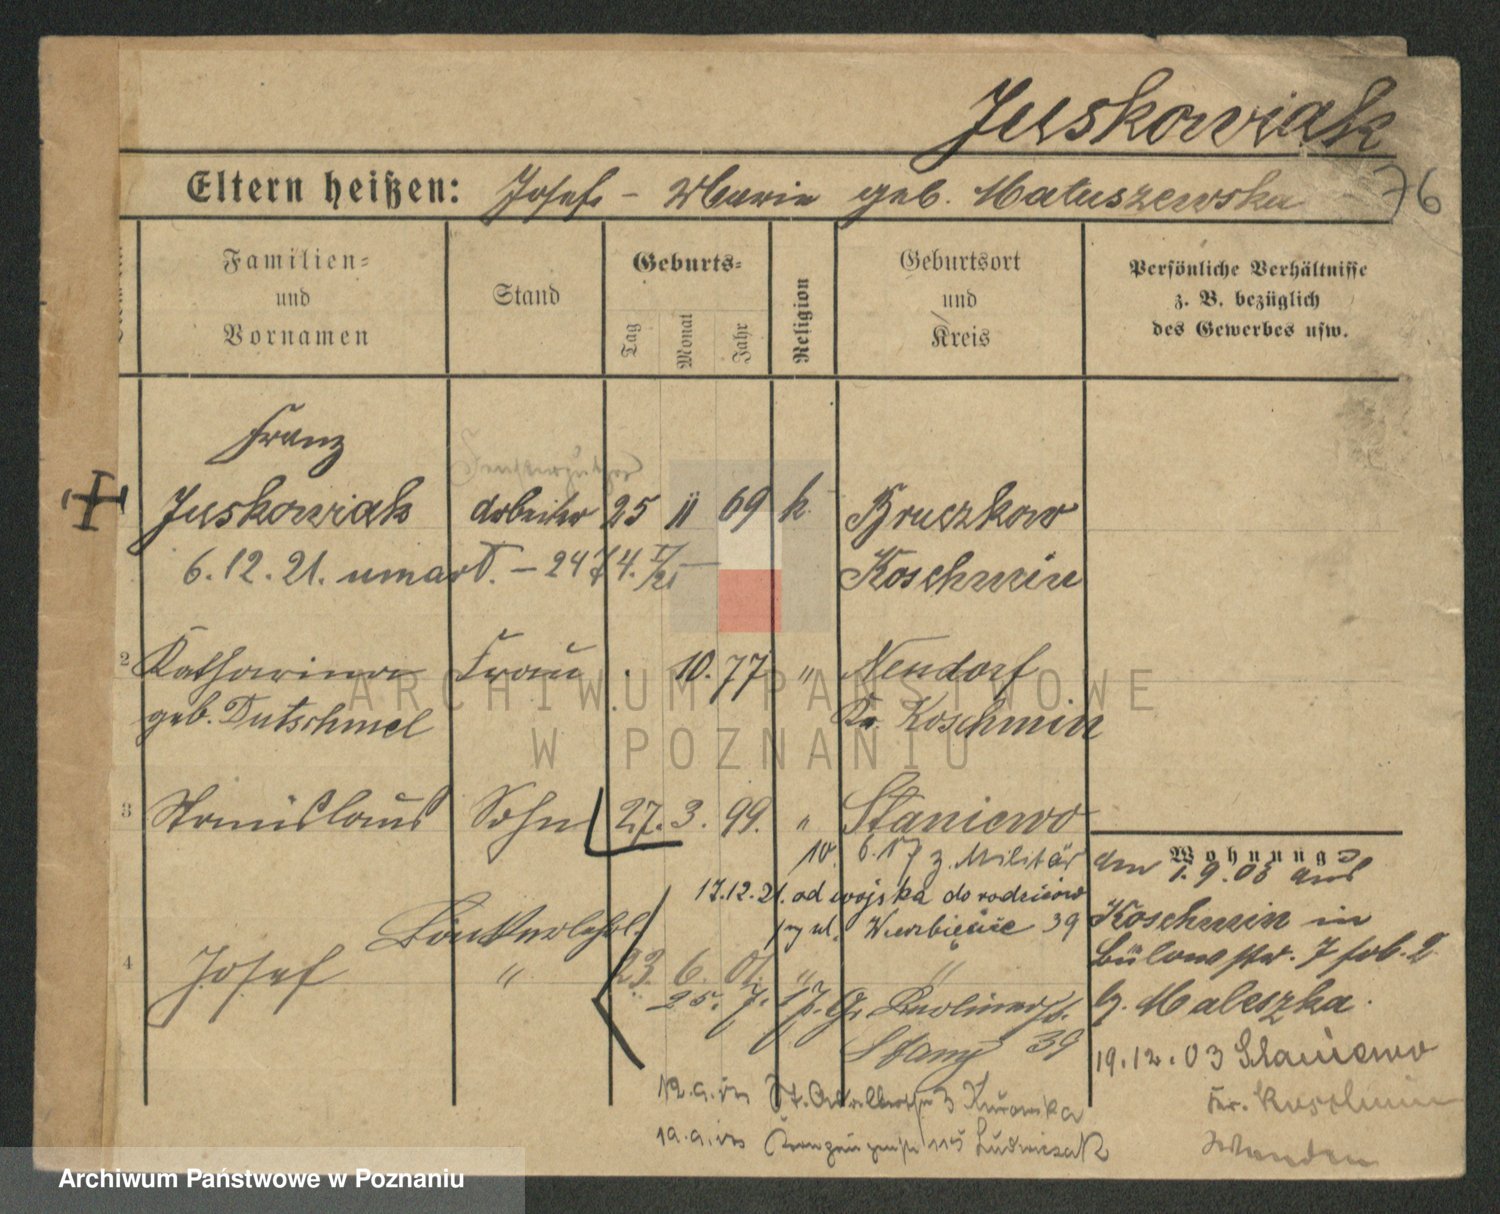 Juskowiak
76
Eltern heißen: Josef – Marie geb. Matuszewska
Familien-
und
Vornamen
Stand
Geburts-
Tag
Monat
Jahr
Religion
Geburtsort
und
Kreis
Persönliche Verhältnisse
z. B. bezüglich
des Gewerbes usw.
Franz
Juskowiak Arbeiter 25 11 69 k. Bruczkow
6.12.21. umarł. – 24 Koschmin
2 Katharina Frau . 10. 77 " Neudorf
geb. Dutschmel Kr. Koschmin
3 Stanislaus Sohn 27. 3. 99. " Staniewo
10. 6. 17 z. Militär
17.12.21. od wojska do rodziców
przy ul. Wierzbięcice 39
4 Josef " 23. 6. 01. " "
25. 7. 17. Gr. Berlinerstr.
39
Wohnung
den 1.9.03 aus
Koschmin in
Bülowstr. 7
b. Maleszka.
19.12.03 Staniewo
Kr. Koschmin
3 Kurowska
115 Ludwiczak
ARCHIWUM PAŃSTWOWE
W POZNANIU
Archiwum Państwowe w Poznaniu